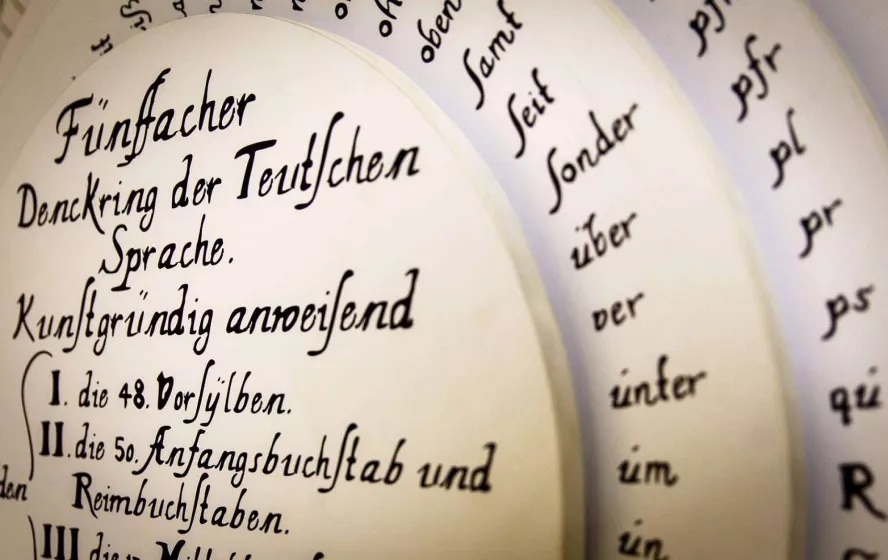 Fünffacher
Denckring der Teutſchen
Sprache.
Kunſtgründig anweiſend
I. die 48. Vorſÿlben.
II. die 50. Anfangsbuchſtab und
den Reimbuchſtaben.
III
oben
ſamt
ſeit
ſonder
über
ver
únter
úm
ún
pfr
pl
pr
ps
qú
R